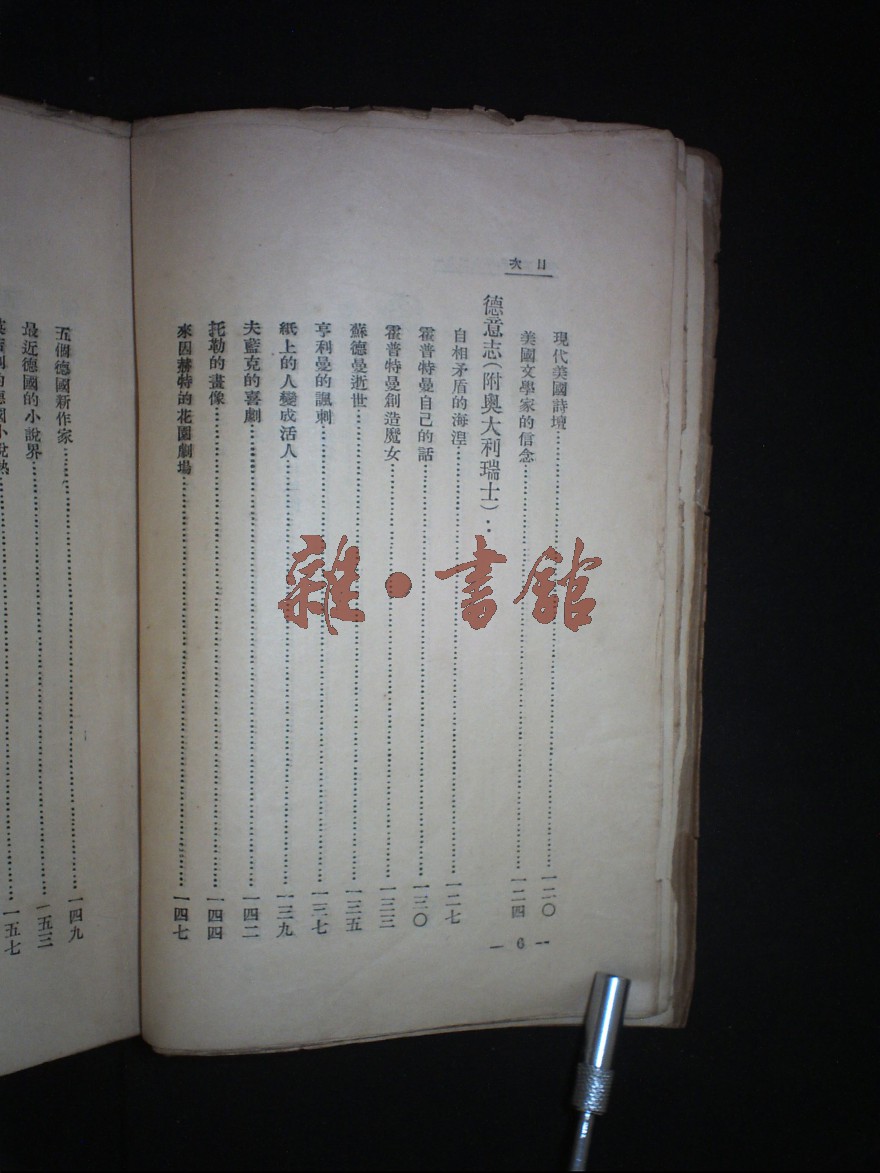 目次
現代美國詩壇……一二〇
美國文學家的信念……一二四
德意志（附奧大利瑞士）：
自相矛盾的海涅……一二七
霍普特曼自己的話……一三〇
霍普特曼創造魔女……一三三
蘇德曼逝世……一三五
亨利曼的諷刺……一三七
紙上的人變成活人……一三九
夫藍克的喜劇……一四二
托勒的畫像……一四四
來因赫特的花園劇場……一四七
— 6 —
五個德國新作家……一四九
最近德國的小說界……一五三
的德國小說熱……一五七
雜·書館